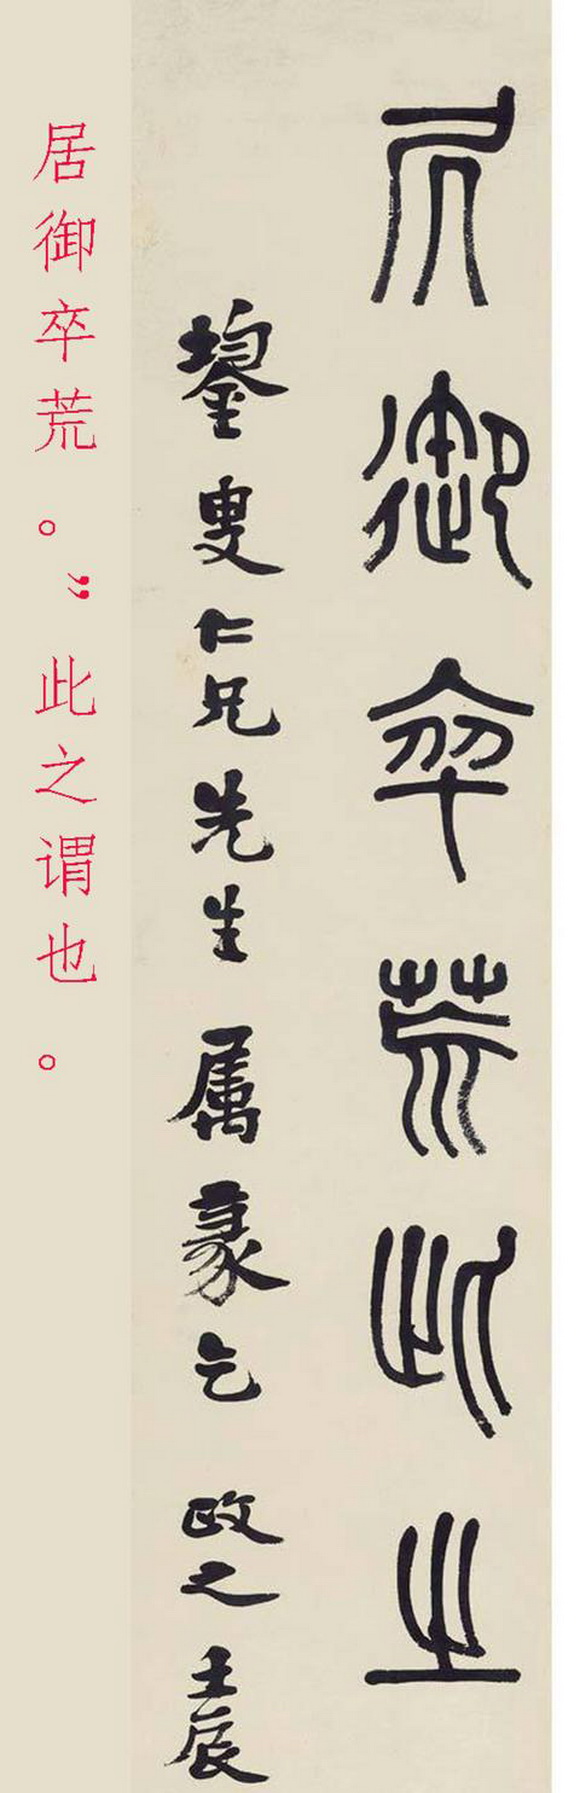 居御卒荒此之
鋆叟仁兄先生属篆乞政之壬辰
居御卒荒。”此之谓也。